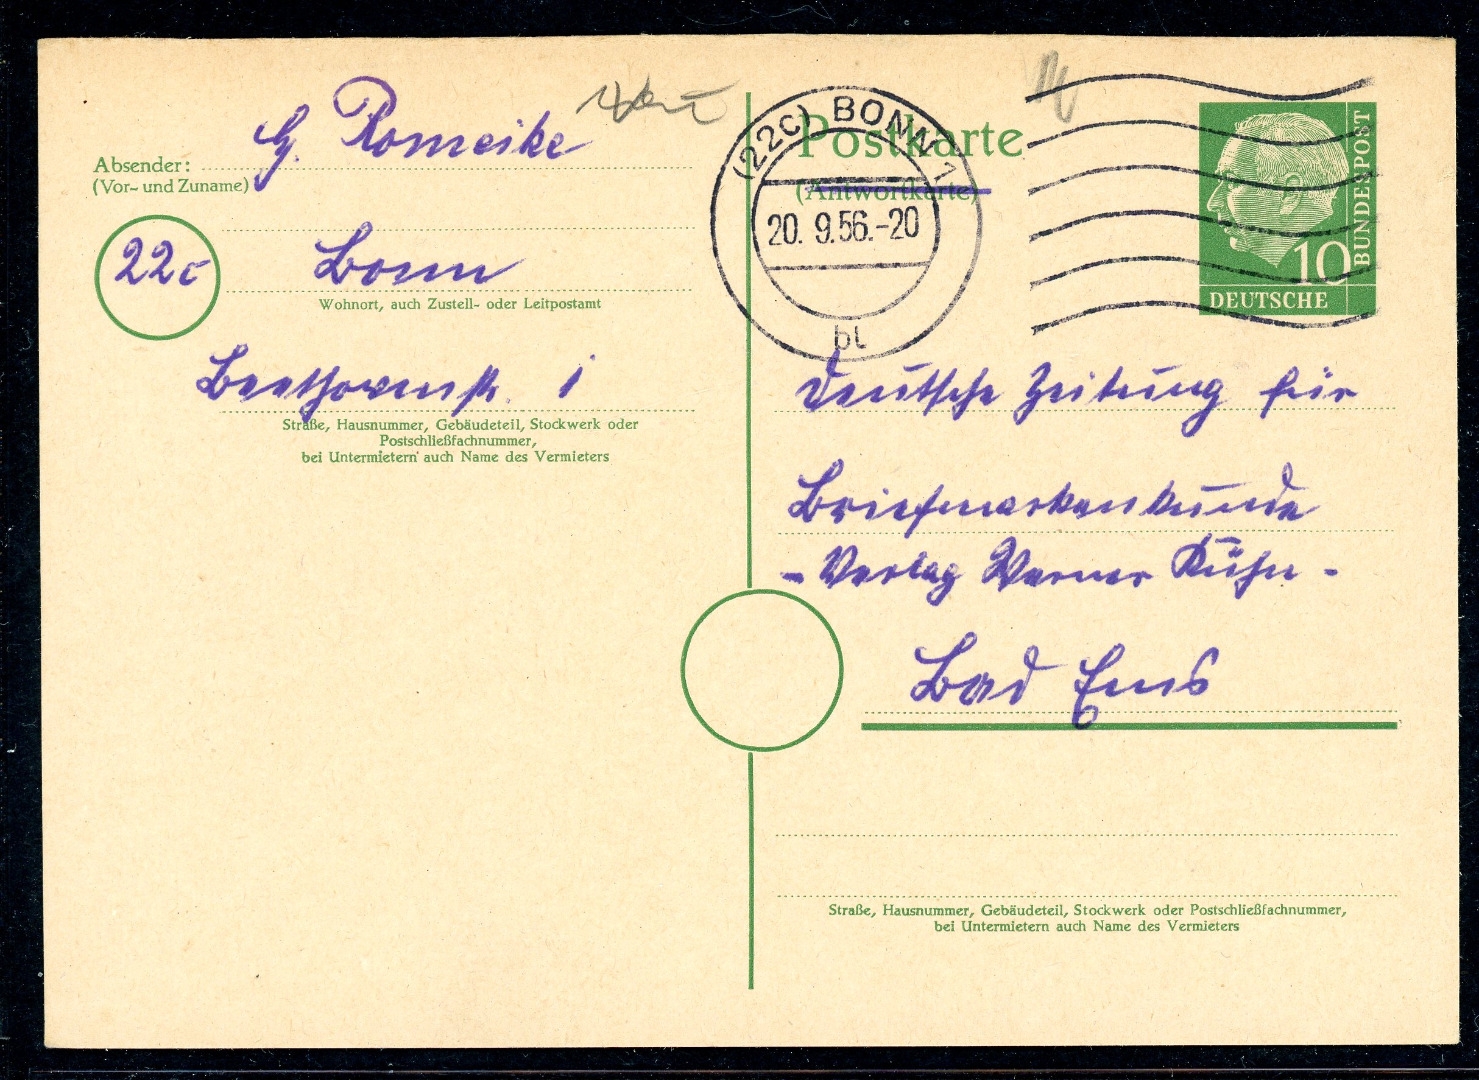 Absender: G. Romeike
(Vor- und Zuname)
22c Bonn
Wohnort, auch Zustell- oder Leitpostamt
Beethovenstr. 1
Straße, Hausnummer, Gebäudeteil, Stockwerk oder
Postschließfachnummer,
bei Untermietern auch Name des Vermieters
Postkarte
(Antwortkarte)
(22c) BONN 1
20. 9.56.-20
bl
10
DEUTSCHE
BUNDESPOST
Deutsche Zeitung für
Briefmarkenkunde
- Verlag Werner Kühn -
Bad Ems
Straße, Hausnummer, Gebäudeteil, Stockwerk oder Postschließfachnummer,
bei Untermietern auch Name des Vermieters